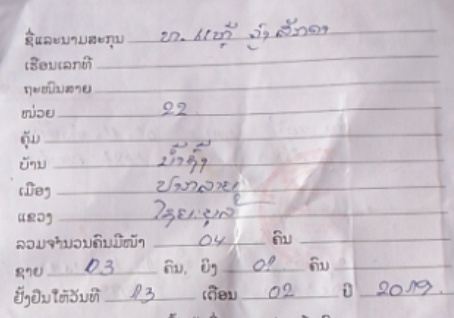 ຊື່ແລະນາມສະກຸນ ທ. ແກ້ວ
ເຮືອນເລກທີ
ຖະໜົນສາຍ
ໜ່ວຍ 22
ຄຸ້ມ
ບ້ານ ນ້ຳຊົ້ງ
ເມືອງ ປາກລາຍ
ແຂວງ ໄຊຍະບູລີ
ລວມຈຳນວນຄົນມີໜ້າ 04 ຄົນ
ຊາຍ 03 ຄົນ, ຍິງ 01 ຄົນ
ຢັ້ງຢືນໃຫ້ວັນທີ 13 ເດືອນ 02 ປີ 2019